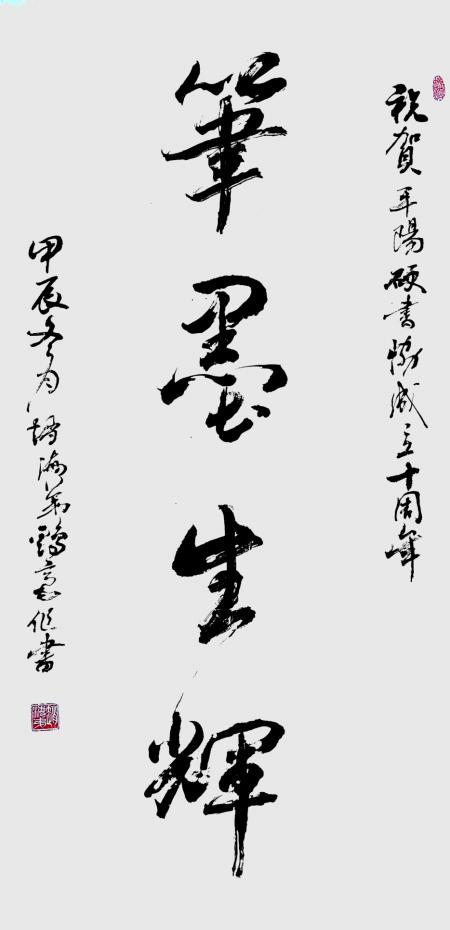 祝賀平陽硬書協成立十周年
筆墨生輝
甲辰冬月
書